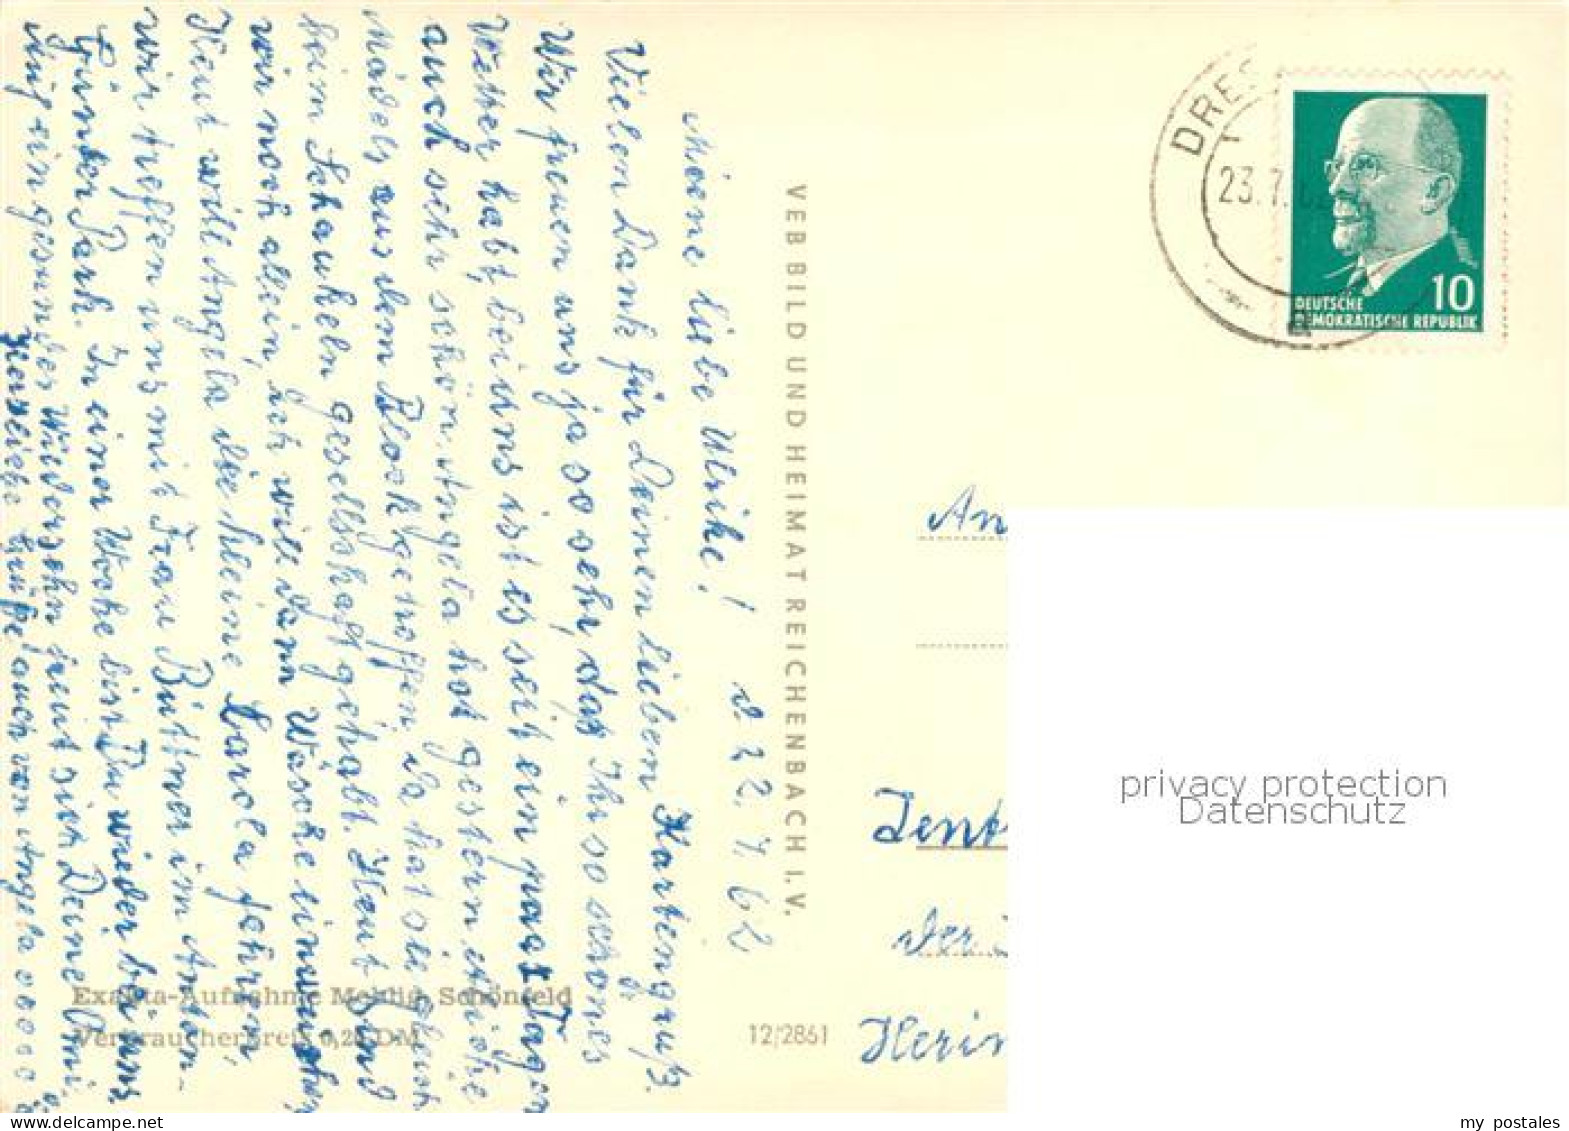 Meine liebe Ulrike! d. 22.7.62
Vielen Dank für Deinen lieben Kartengruß.
Wir freuen uns ja so sehr, daß Ihr so schönes
Wetter habt, bei uns ist es seit ein paar Tagen
auch sehr schön. Angela hat gestern
Mädels aus dem Block getroffen, da hat sie gleich
beim Schaukeln gesellschaft gehabt. Heut sind
wir noch allein, ich will dann Wäsche
Heut will Angela die kleine Carola fahren,
wir treffen uns mit Frau Büttner im Anton-
Günter Park. In einer Woche bist Du wieder bei uns.
Auf ein gesundes Wiedersehn freut sich Deine Omi
Herzliche Grüße auch von Angela
VEB BILD UND HEIMAT REICHENBACH I. V.
Exakta-Aufnahme Mehlig, Schönfeld
Verbraucherpreis 0,20 DM
12/2861
DRES
23.7.62
10
DEUTSCHE
DEMOKRATISCHE REPUBLIK
An
Zent
der
Herin
privacy protection
Datenschutz
delcampe.net
my_postales